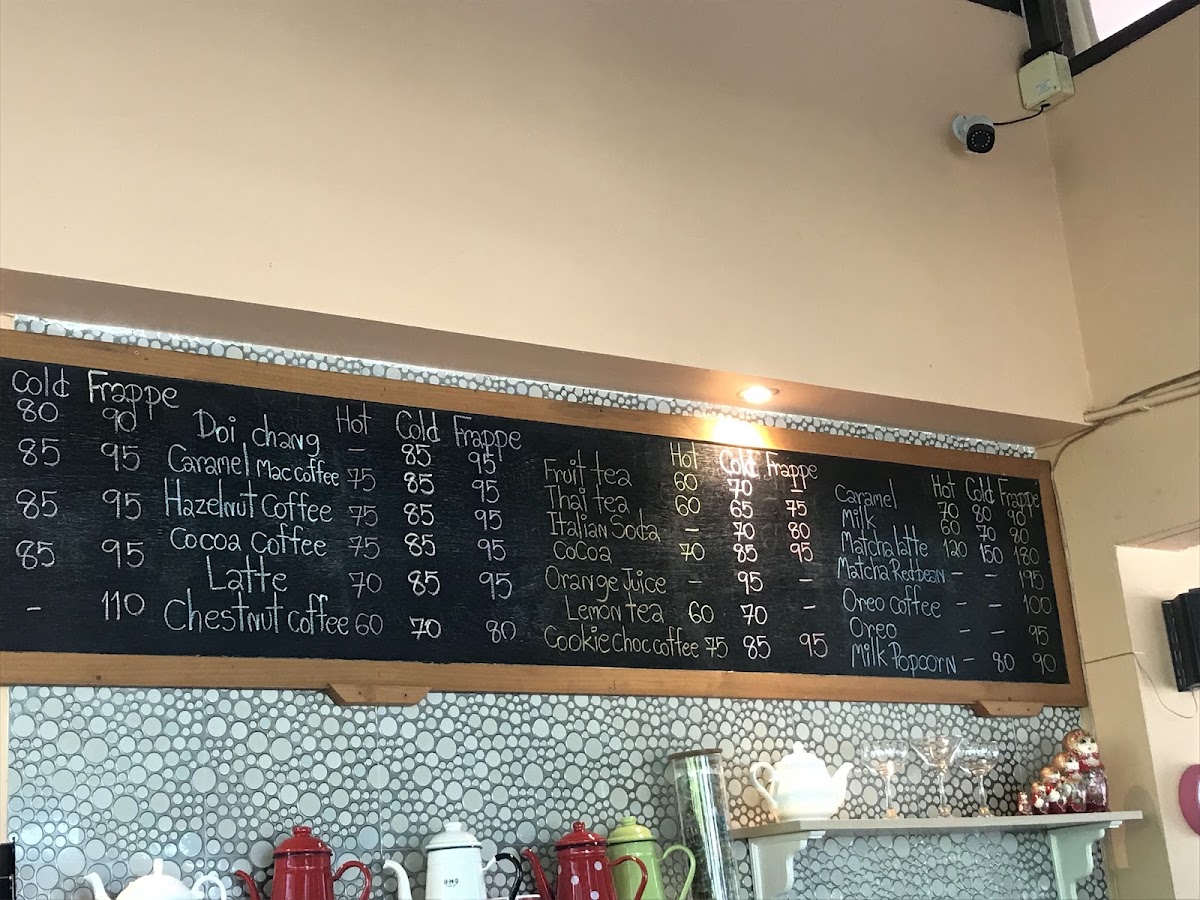 Cold Frappe
80 90
85 95
85 95
85 95
- 110
Hot Cold Frappe
Doi chang - 85 95
Caramel Maccoffee 75 85 95
Hazelnut Coffee 75 85 95
Cocoa Coffee 75 85 95
Latte 70 85 95
Chestnut coffee 60 70 80
Hot Cold Frappe
Fruit tea 60 70 -
Thai tea 60 65 75
Italian Soda - 70 80
CoCoa 70 85 95
Orange Juice - 95 -
Lemon tea 60 70 -
Cookie Choc coffee 75 85 95
Hot Cold Frappe
Caramel 70 80 90
Milk 60 70 80
Matcha latte 120 150 180
Matcha Redbean - - 195
Oreo coffee - - 100
Oreo - - 95
Milk Popcorn - 80 90